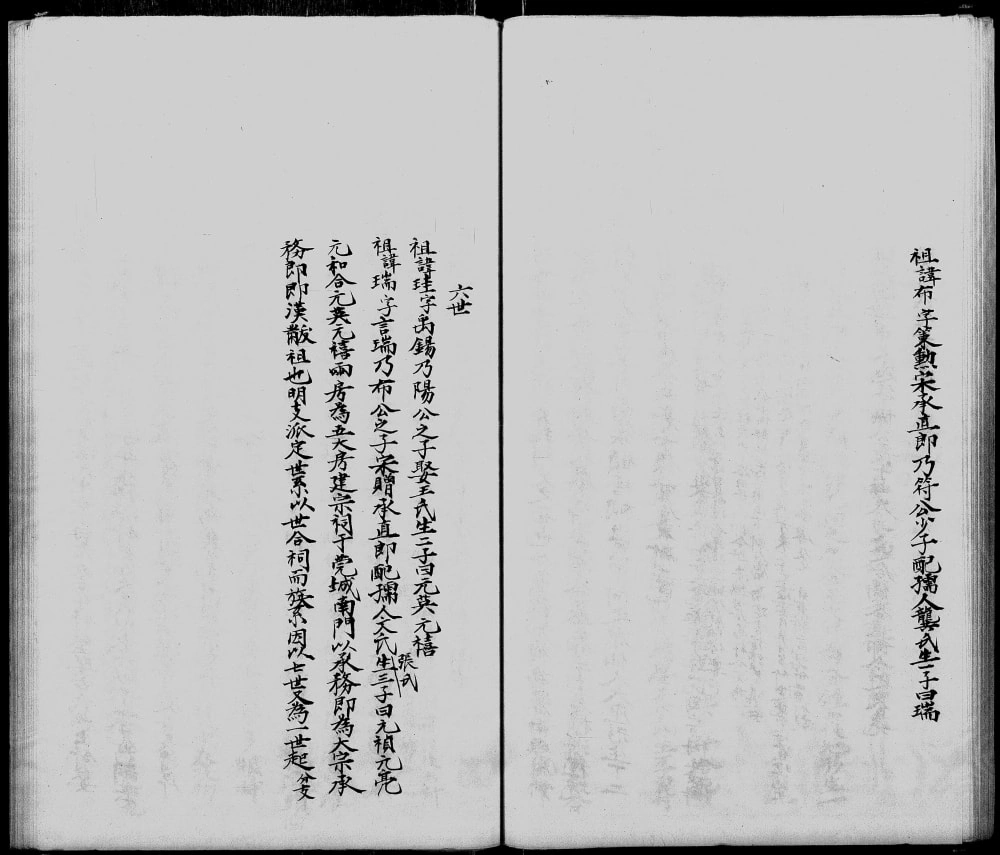 祖諱布字策勲宋承直郎乃符公少子配孺人龔氏生一子曰瑞
六世
祖諱珪字禹錫乃陽公之子娶王氏生二子曰元英元禧
祖諱瑞字言瑞乃布公之子宋贈承直郎配孺人文氏張氏生三子曰元禎元亮
元和合元英元禧兩房為五大房建宗祠于莞城南門以承務郎為大宗承
務郎即漢黻祖也明支派定世系以世合祠而族系因以七世又為一世起分支